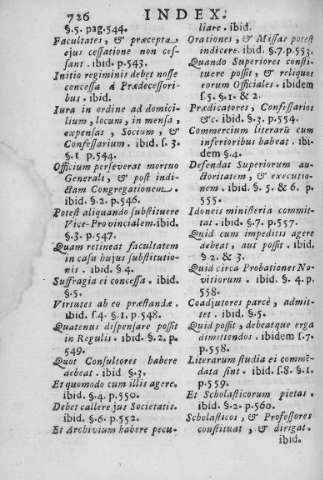 726 INDEX.
§.5. pag.544.
Facultates, & præcepta
ejus cessatione non ces-
sant. ibid. p.543.
Initio regiminis debet nosse
concessa à Prædecessori-
bus. ibid.
Iura in ordine ad domici-
lium, locum, in mensa,
expensas, Socium, &
Confessarium. ibid. s. 3.
§.1. p.544.
Officium perseverat mortuo
Generali, & post indi-
ctam Congregationem.
ibid. §.2. p.546.
Potest aliquando substituere
Vice-Provincialem. ibid.
§.3. p.547.
Quam retineat facultatem
in casu hujus substitutio-
nis. ibid. §.4.
Suffragia ei concessa. ibid.
§.5.
Virtutes ab eo præstandæ.
ibid. s.4. §.1. p.548.
Quatenus dispensare possit
in Regulis. ibid. §.2. p.
549.
Quot Consultores habere
debeat. ibid. §.3.
Et quomodo cum illis agere.
ibid. §.4. p.550.
Debet callere jus Societatis.
ibid. §.6. p.552.
Et Archivium habere pecu-
liare. ibid.
Orationes, & Missas potest
indicere. ibid. §.7. p.553.
Quando Superiores consti-
tuere possit, & reliquos
eorum Officiales. ibidem
s.5. §.1. & 2.
Prædicatores, Confessarios
&c. ibid. §.3. p.554.
Commercium literarũ cum
inferioribus habeat. ibi-
dem §.4.
Defendat Superiorum au-
ctoritatem, & executio-
nem. ibid. §. 5. & 6. p.
555.
Idoneis ministeria commit-
tat. ibid. §.7. p.557.
Quid cum impeditis agere
debeat, aut possit. ibid.
§. 2. & 3.
Quid circa Probationes No-
vitiorum. ibid. §. 4. p.
558.
Coadjutores parcè, admit-
tet. ibid. §.5.
Quid possit, debeatque erga
dimittendos. ibidem s.7.
p.558.
Literarum studia ei commẽ-
data sint. ibid. s.8. §.1.
p.559.
Et Scholasticorum pietas.
ibid. §.2. p.560.
Scholasticos, & Professores
constituat, & dirigat.
ibid.